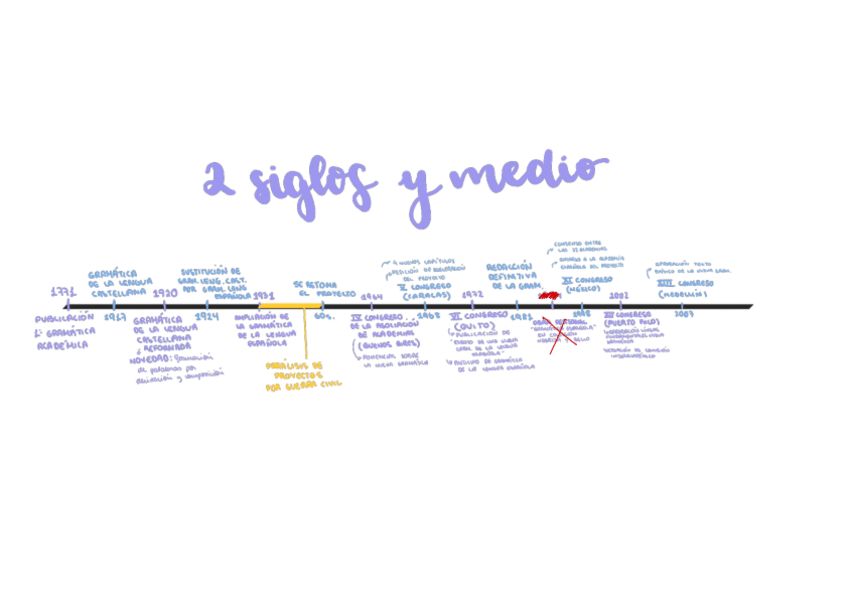 2 siglos y medio
1771
PUBLICACIÓN
1ª GRAMÁTICA
ACADÉMICA
GRAMÁTICA
DE LA LENGUA
CASTELLANA
1917
1920
GRAMÁTICA
DE LA LENGUA
CASTELLANA
REFORMADA
NOVEDAD: formación
de palabras por
derivación y composición
SUSTITUCIÓN DE
GRAM. LENG. CAST.
POR GRAM. LENG.
ESPAÑOLA
1924
1931
AMPLIACIÓN DE
LA GRAMÁTICA
DE LA LENGUA
ESPAÑOLA
PARÁLISIS DE
PROYECTOS
POR GUERRA CIVIL
SE RETOMA
EL PROYECTO
60s.
1964
IV CONGRESO
DE LA ASOCIACIÓN
DE ACADEMIAS
(BUENOS AIRES)
PONENCIAS SOBRE
LA NUEVA GRAMÁTICA
4 NUEVOS CAPÍTULOS
PETICIÓN DE
DEL PROYECTO
V CONGRESO
(CARACAS)
1968
1972
VI CONGRESO
(QUITO)
PUBLICACIÓN DE
"ESBOZO DE UNA NUEVA
GRAM. DE LA LENGUA
ESPAÑOLA"
DE GRAMÁTICA
DE LA LENGUA ESPAÑOLA
REDACCIÓN
DEFINITIVA
DE LA GRAM.
1981
CONSENSO ENTRE
LAS ACADEMIAS
A LA ACADEMIA
ESPAÑOLA DEL PROYECTO
XI CONGRESO
(MÉXICO)
1998
2002
XII CONGRESO
(PUERTO RICO)
APROBACIÓN TEXTO
BÁSICO DE LA NUEVA GRAM.
XIII CONGRESO
(MEDELLÍN)
2007